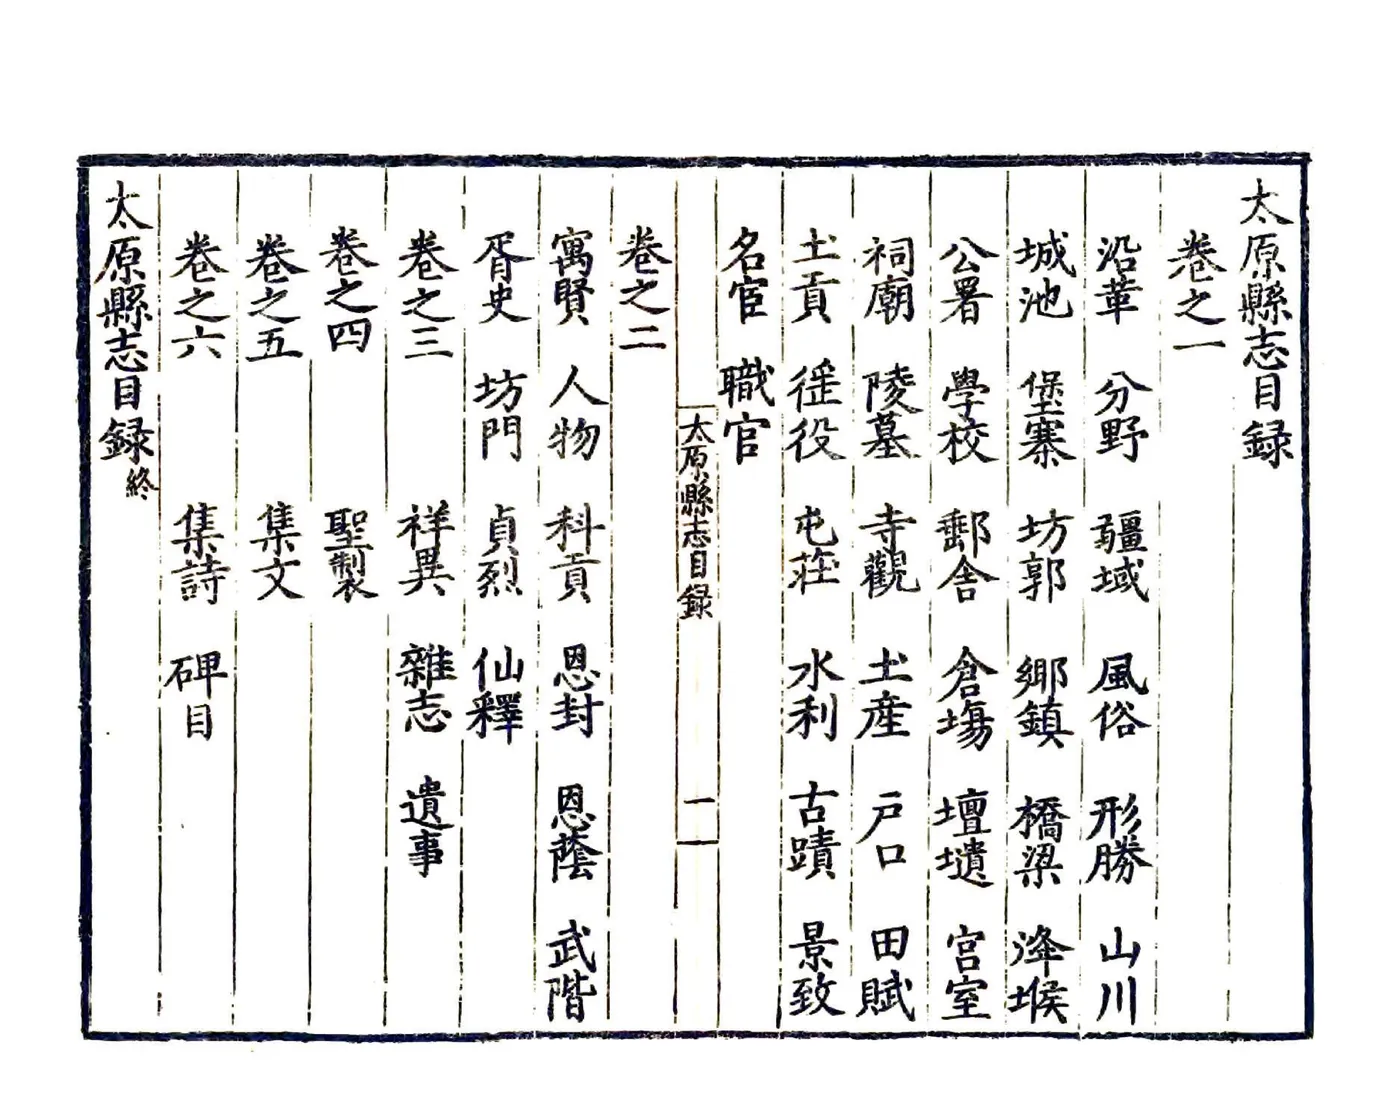 太原縣志目録
卷之一
沿革 分野 疆域 風俗 形勝 山川
城池 堡寨 坊郭 鄉鎮 橋梁 烽堠
公署 學校 郵舍 倉塲 壇壝 宮室
祠廟 陵墓 寺觀 土産 戶口 田賦
土貢 徭役 屯莊 水利 古蹟 景致
名宦 職官
太原縣志目録 一
卷之二
寓賢 人物 科貢 恩封 恩蔭 武階
胥史 坊門 貞烈 仙釋
卷之三 祥異 雜志 遺事
卷之四 聖製
卷之五 集文
卷之六 集詩 碑目
太原縣志目録終